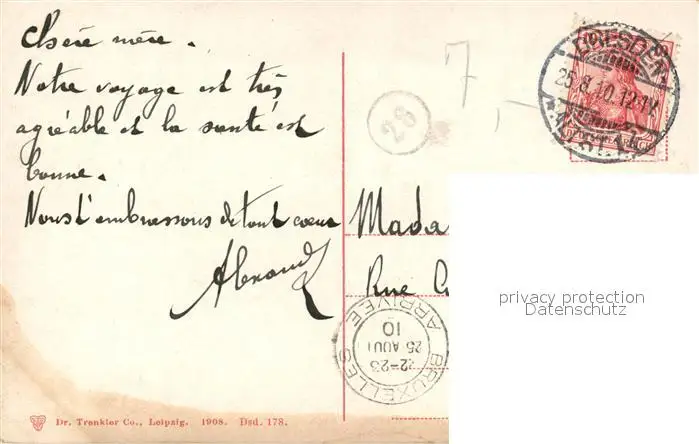 Chère mère.
Notre voyage est très
agréable et la santé est
bonne.
Nous t'embrassons de tout coeur
Mada
Rue
7,-
28
DRESDEN
25.8.10.12-1
BRUXELLES
22-23
25 AOUT
10
ARRIVEE
privacy protection
Datenschutz
Dr. Trenkler Co., Leipzig. 1908. Dsd. 178.